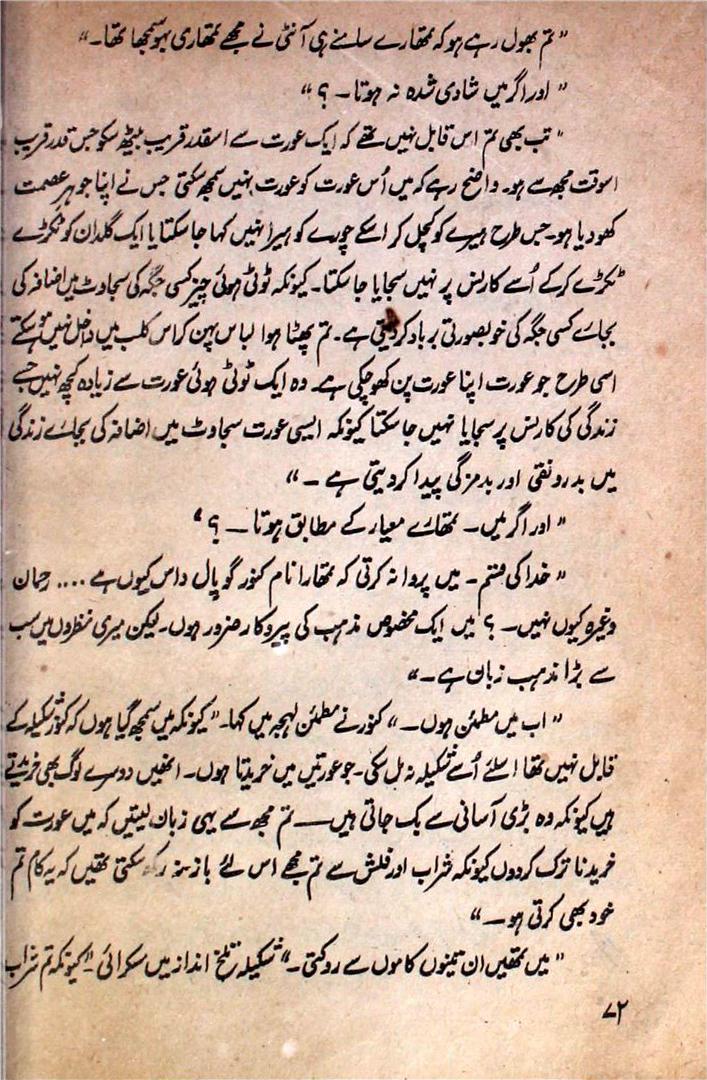 ” تم بھول رہے ہو کہ تمھارے سامنے ہی آنٹی نے مجھے تمھاری بہو سمجھا تھا۔ “
” اور اگر میں شادی شدہ نہ ہوتا ۔ ؟ “
” تب بھی تم اس قابل نہیں تھے کہ ایک عورت سے اسقدر قریب بیٹھ سکو جس قدر قریب
اسوقت مجھ سے ہو۔ واضح رہے کہ میں اُس عورت کو عورت نہیں سمجھ سکتی جس نے اپنا جوہر عصمت
کھو دیا ہو۔ جس طرح ہیرے کو کچل کر اسکے چورے کو ہیرا نہیں کہا جا سکتا یا ایک گلدان کو ٹکڑے
ٹکڑے کرکے اُسے کارنس پر نہیں سجایا جا سکتا۔ کیونکہ ٹوٹی ہوئی چیز کسی جگہ کی سجاوٹ میں اضافہ کی
بجائے کسی جگہ کی خوبصورتی برباد کر دیتی ہے۔ تم پھٹا ہوا لباس پہن کر اس کلب میں داخل نہیں ہو سکتے
اسی طرح جو عورت اپنا عورت پن کھو چکی ہے۔ وہ ایک ٹوٹی ہوئی عورت سے زیادہ کچھ نہیں جسے
زندگی کی کارنس پر سجایا نہیں جا سکتا کیونکہ ایسی عورت سجاوٹ میں اضافہ کی بجائے زندگی
میں بدرونقی اور بدمزگی پیدا کر دیتی ہے ۔ “
” اور اگر میں ۔ تمھارے معیار کے مطابق ہوتا ۔ ؟ “
” خدا کی قسم ۔ میں پروا نہ کرتی کہ تمھارا نام کنور گوپال داس کیوں ہے .... رحمان
وغیرہ کیوں نہیں ۔ ؟ میں ایک مخصوص مذہب کی پیروکار ضرور ہوں۔ لیکن میری نظروں میں سب
سے بڑا مذہب زبان ہے ۔ “
” اب میں مطمئن ہوں ۔ “ کنور نے مطمئن لہجہ میں کہا۔ ” کیونکہ میں سمجھ گیا ہوں کہ کنور شکیلہ کے
قابل نہیں تھا اسلئے اُسے شکیلہ نہ مل سکی۔ جو عورتیں میں خریدتا ہوں۔ انھیں دوسرے لوگ بھی خریدتے
ہیں کیونکہ وہ بڑی آسانی سے بک جاتی ہیں — تم مجھ سے یہی زبان لیتیں کہ میں عورت کو
خریدنا ترک کر دوں کیونکہ شراب اور فلش سے تم مجھے اس لئے باز نہ رکھ سکتی تھیں کہ یہ کام تم
خود بھی کرتی ہو ۔ “
” میں تمھیں ان تینوں کاموں سے روکتی ۔ “ شکیلہ تلخ انداز میں مسکرائی ۔ ” کیونکہ تم شراب
۷۲